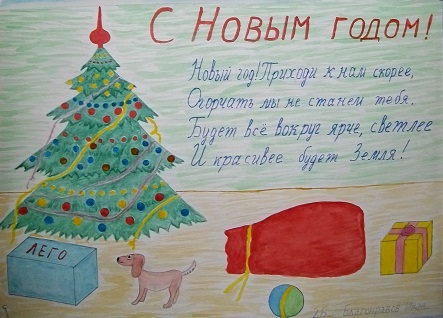 С Новым годом!
Новый год! Приходи к нам скорее,
Огорчать мы не станем тебя.
Будет всё вокруг ярче, светлее
И красивее будет Земля!
ЛЕГО